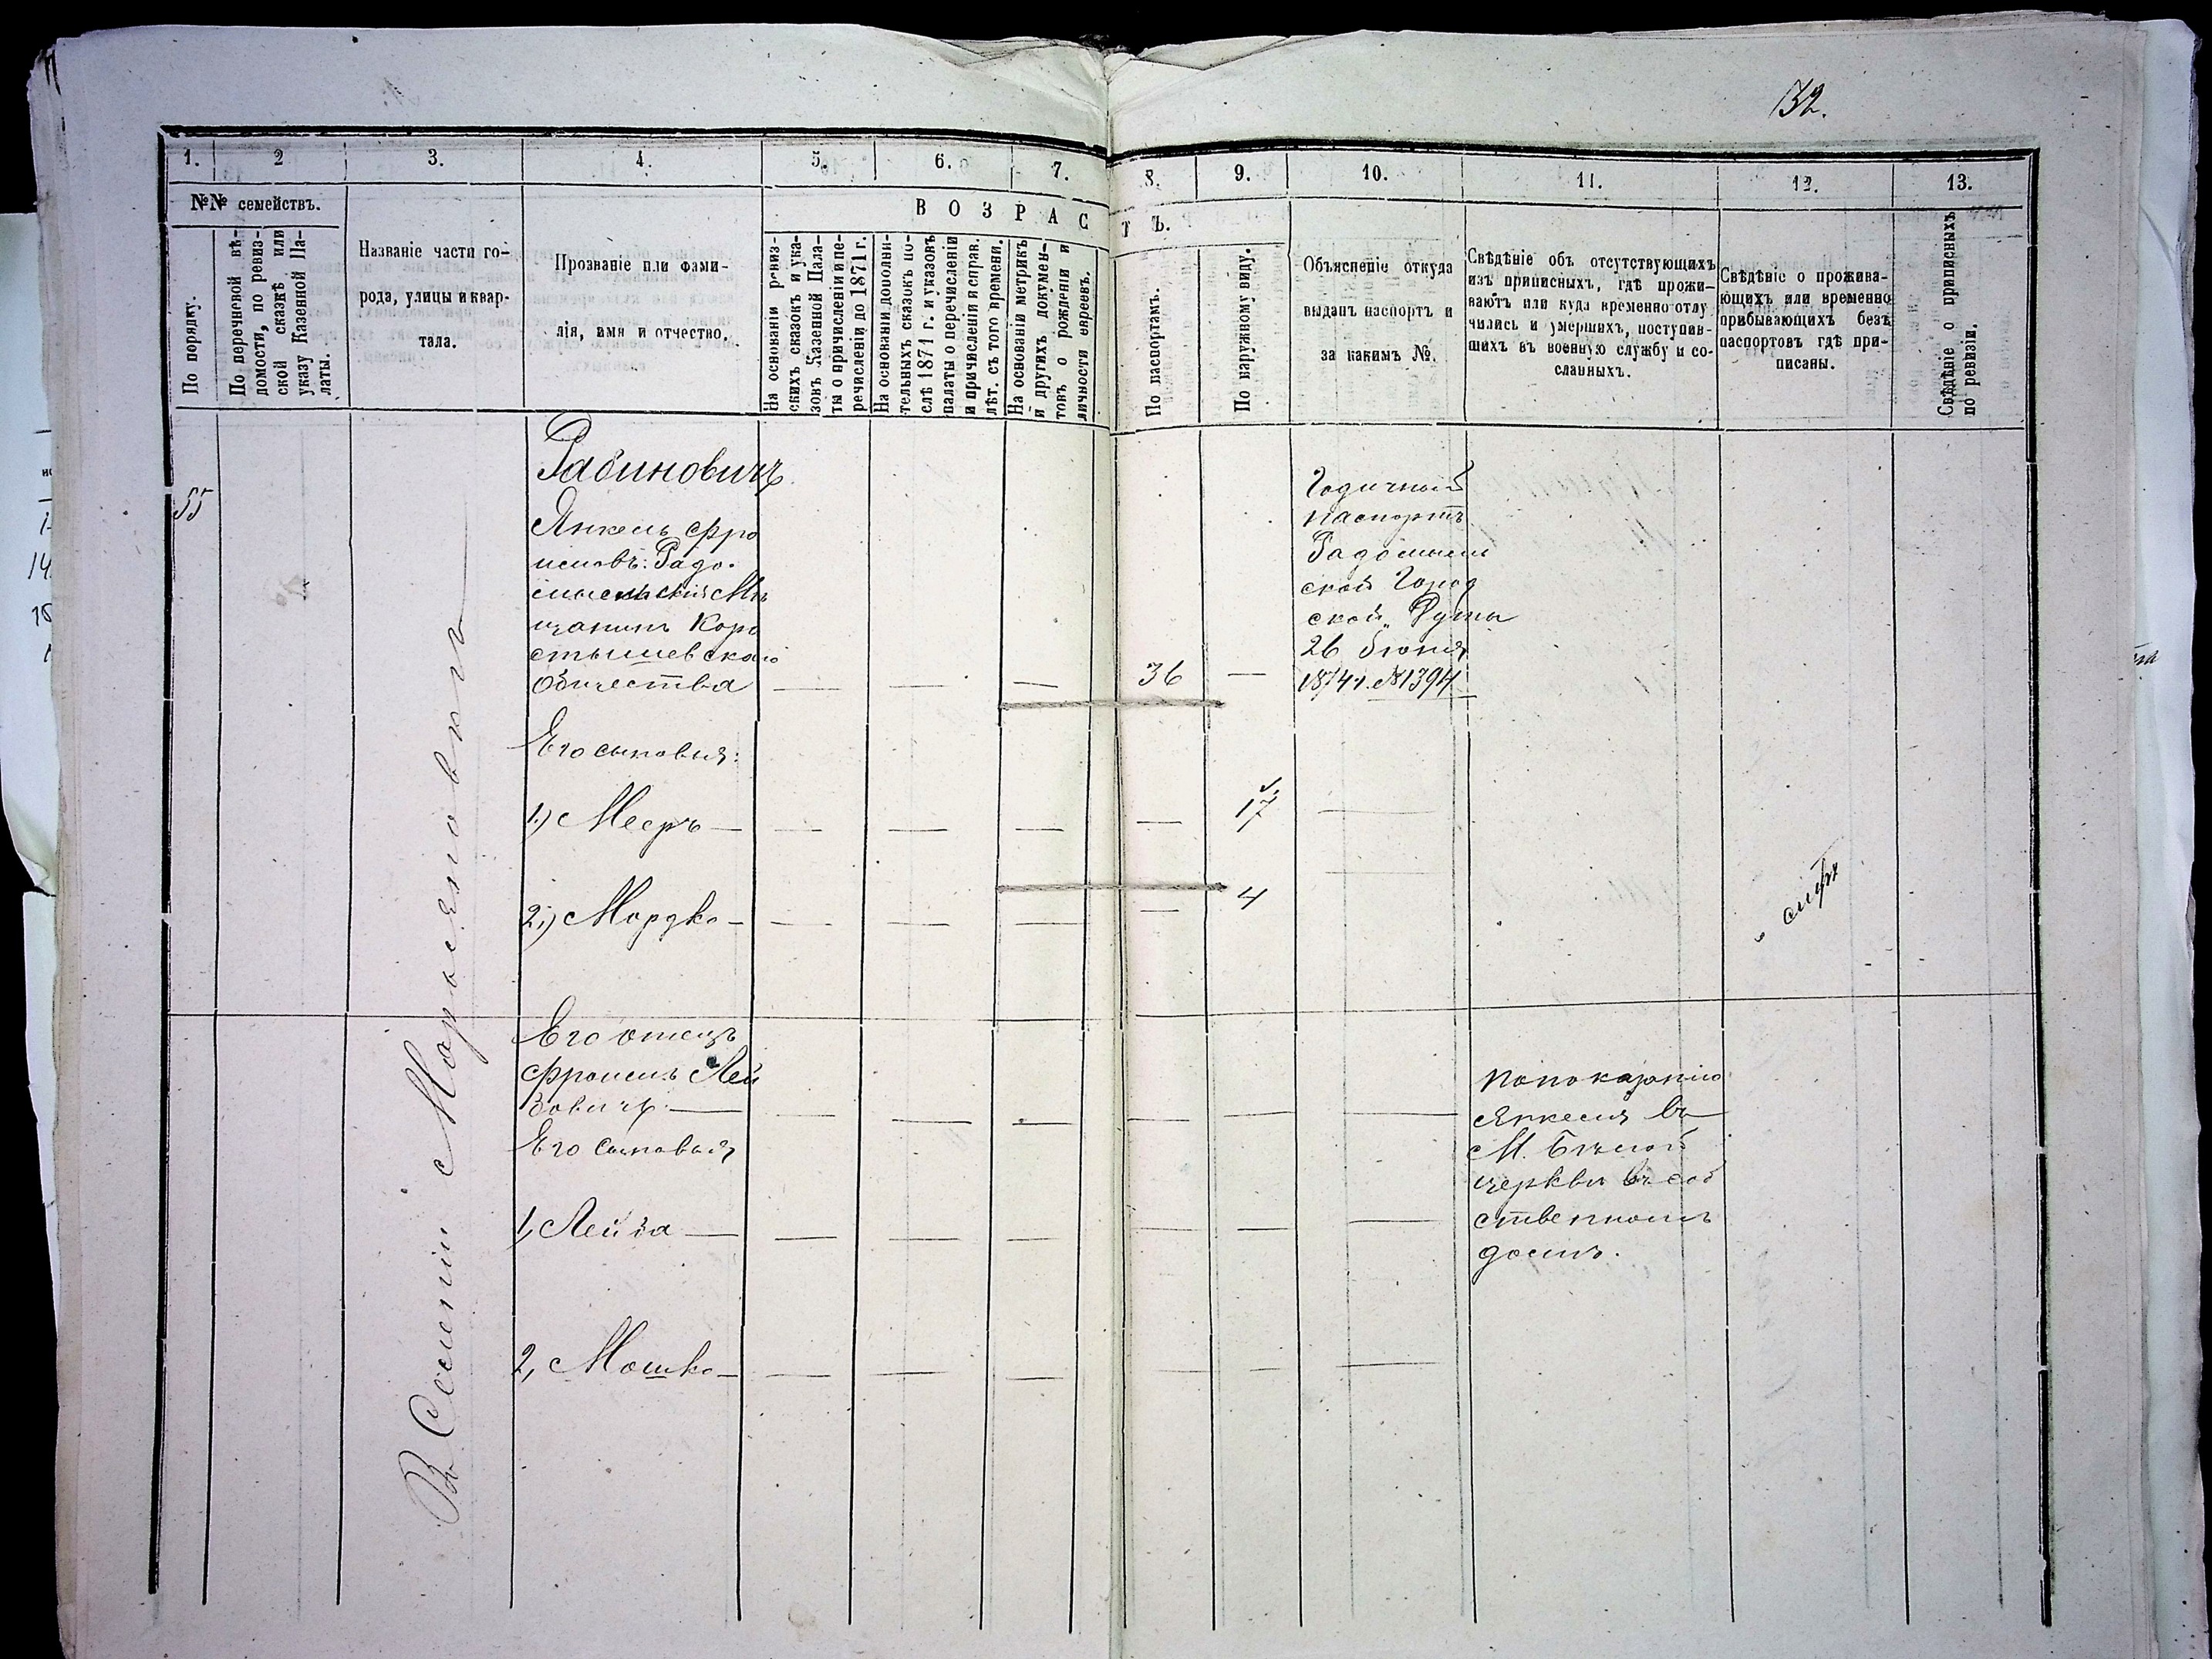 132.
1. 2 3. 4. 5. 6. 7. 8. 9. 10. 11. 12. 13.
№№ семействъ.
По порядку.
По перечневой вѣ-
домости, по ревиз-
ской сказкѣ или
указу Казенной Па-
латы.
Названіе части го-
рода, улицы и квар-
тала.
Прозваніе или фами-
лія, имя и отчество.
ВОЗРАСТЪ.
На основаніи ревиз-
скихъ сказокъ и ука-
зовъ Казенной Пала-
ты о причисленіи и пе-
речисленіи до 1871 г.
На основаніи дополни-
тельныхъ сказокъ по-
слѣ 1871 г. и указовъ
палаты о перечисленіи
и причисленія и справ.
лѣт. съ того времени.
На основаніи метрикъ
и другихъ докумен-
товъ о рожденіи и
личности евреевъ.
По паспортамъ.
По наружному виду.
Объясненіе откуда
выданъ паспортъ и
за какимъ №.
Свѣдѣніе объ отсутствующихъ
изъ приписныхъ, гдѣ прожи-
ваютъ или куда временно отлу
чились и умершихъ, поступив-
шихъ въ военную службу и со-
сланныхъ.
Свѣдѣніе о прожива-
ющихъ или временно
прибывающихъ безъ
паспортовъ гдѣ при-
писаны.
Свѣдѣніе о приписныхъ
по ревизіи.
55
Рабиновичъ
Янкель Фро
имовъ: Радо-
мысльскій Мѣ
щанинъ Коро
стышевскаго
Общества
36
Годичный
паспортъ
Радомысль
ской Город
ской Думы
26 Іюня
1874 г. №1394
Его сыновья:
1.) Мееръ
17
2.) Мордко
4
Его отецъ
Фроимъ Лей
зовичъ.
Его сыновья
1, Лейза
2, Мошко
По показанію
Янкеля въ
М. Бѣлой
церкви въ соб
ственномъ
домѣ.
Въ Селеніи